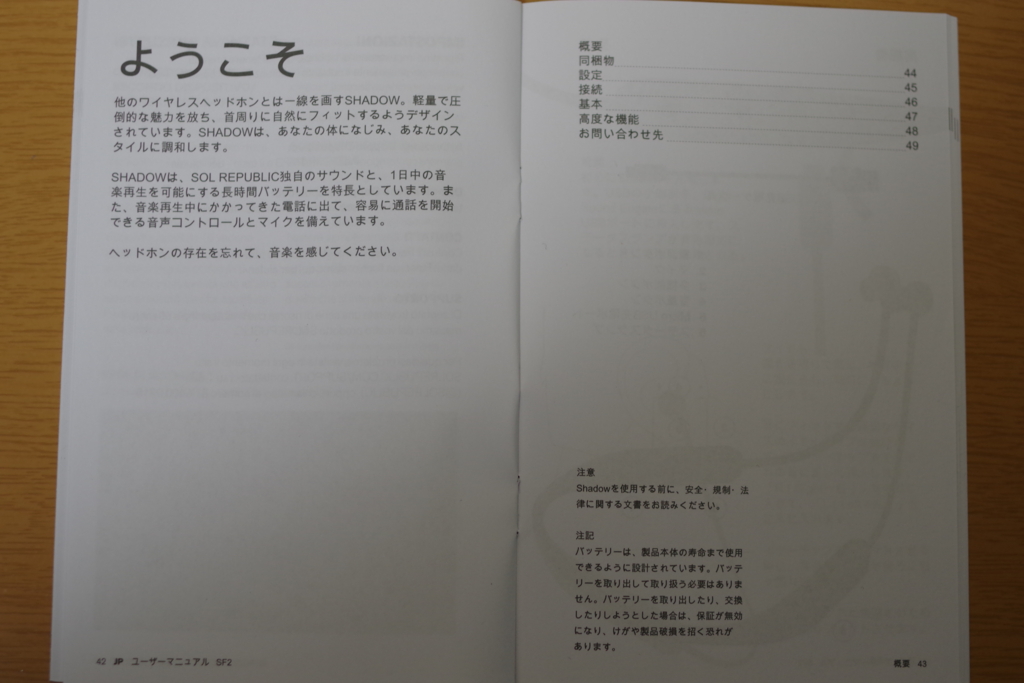 ようこそ
他のワイヤレスヘッドホンとは一線を画すSHADOW。軽量で圧
倒的な魅力を放ち、首周りに自然にフィットするようデザイン
されています。SHADOWは、あなたの体になじみ、あなたのス
タイルに調和します。
SHADOWは、SOL REPUBLIC独自のサウンドと、1日中の音
楽再生を可能にする長時間バッテリーを特長としています。ま
た、音楽再生中にかかってきた電話に出て、容易に通話を開始
できる音声コントロールとマイクを備えています。
ヘッドホンの存在を忘れて、音楽を感じてください。
42 JP ユーザーマニュアル SF2
概要
同梱物 44
設定 45
接続 46
基本 47
高度な機能 48
お問い合わせ先 49
注意
Shadowを使用する前に、安全・規制・法
律に関する文書をお読みください。
注記
バッテリーは、製品本体の寿命まで使用
できるように設計されています。バッテ
リーを取り出して取り扱う必要はありま
せん。バッテリーを取り出したり、交換
したりしようとした場合は、保証が無効
になり、けがや製品破損を招く恐れが
あります。
概要 43